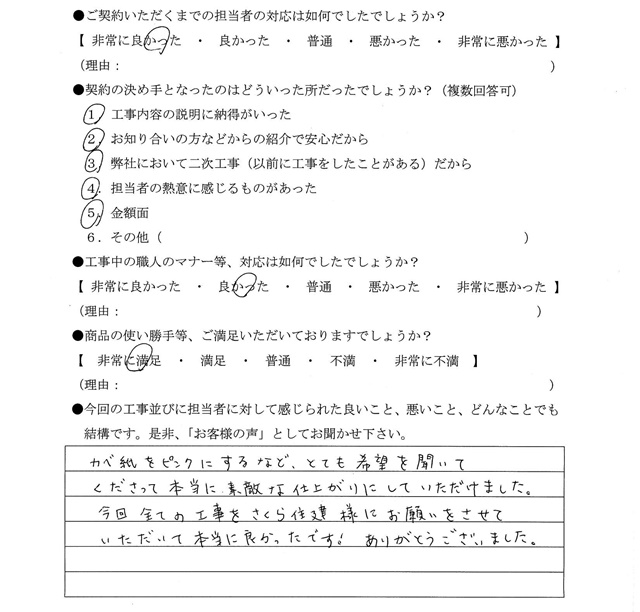 ●ご契約いただくまでの担当者の対応は如何でしたでしょうか？
【 非常に良かった ・ 良かった ・ 普通 ・ 悪かった ・ 非常に悪かった 】
（理由： ）
●契約の決め手となったのはどういった所だったでしょうか？（複数回答可）
１．工事内容の説明に納得がいった
２．お知り合いの方などからの紹介で安心だから
３．弊社において二次工事（以前に工事をしたことがある）だから
４．担当者の熱意に感じるものがあった
５．金額面
６．その他（ ）
●工事中の職人のマナー等、対応は如何でしたでしょうか？
【 非常に良かった ・ 良かった ・ 普通 ・ 悪かった ・ 非常に悪かった 】
（理由： ）
●商品の使い勝手等、ご満足いただいておりますでしょうか？
【 非常に満足 ・ 満足 ・ 普通 ・ 不満 ・ 非常に不満 】
（理由： ）
●今回の工事並びに担当者に対して感じられた良いこと、悪いこと、どんなことでも
結構です。是非、「お客様の声」としてお聞かせ下さい。
カベ紙をピンクにするなど、とても希望を聞いて
くださって本当に素敵な仕上がりにしていただけました。
今回全ての工事をさくら住建様にお願いをさせて
いただいて本当に良かったです！ ありがとうございました。